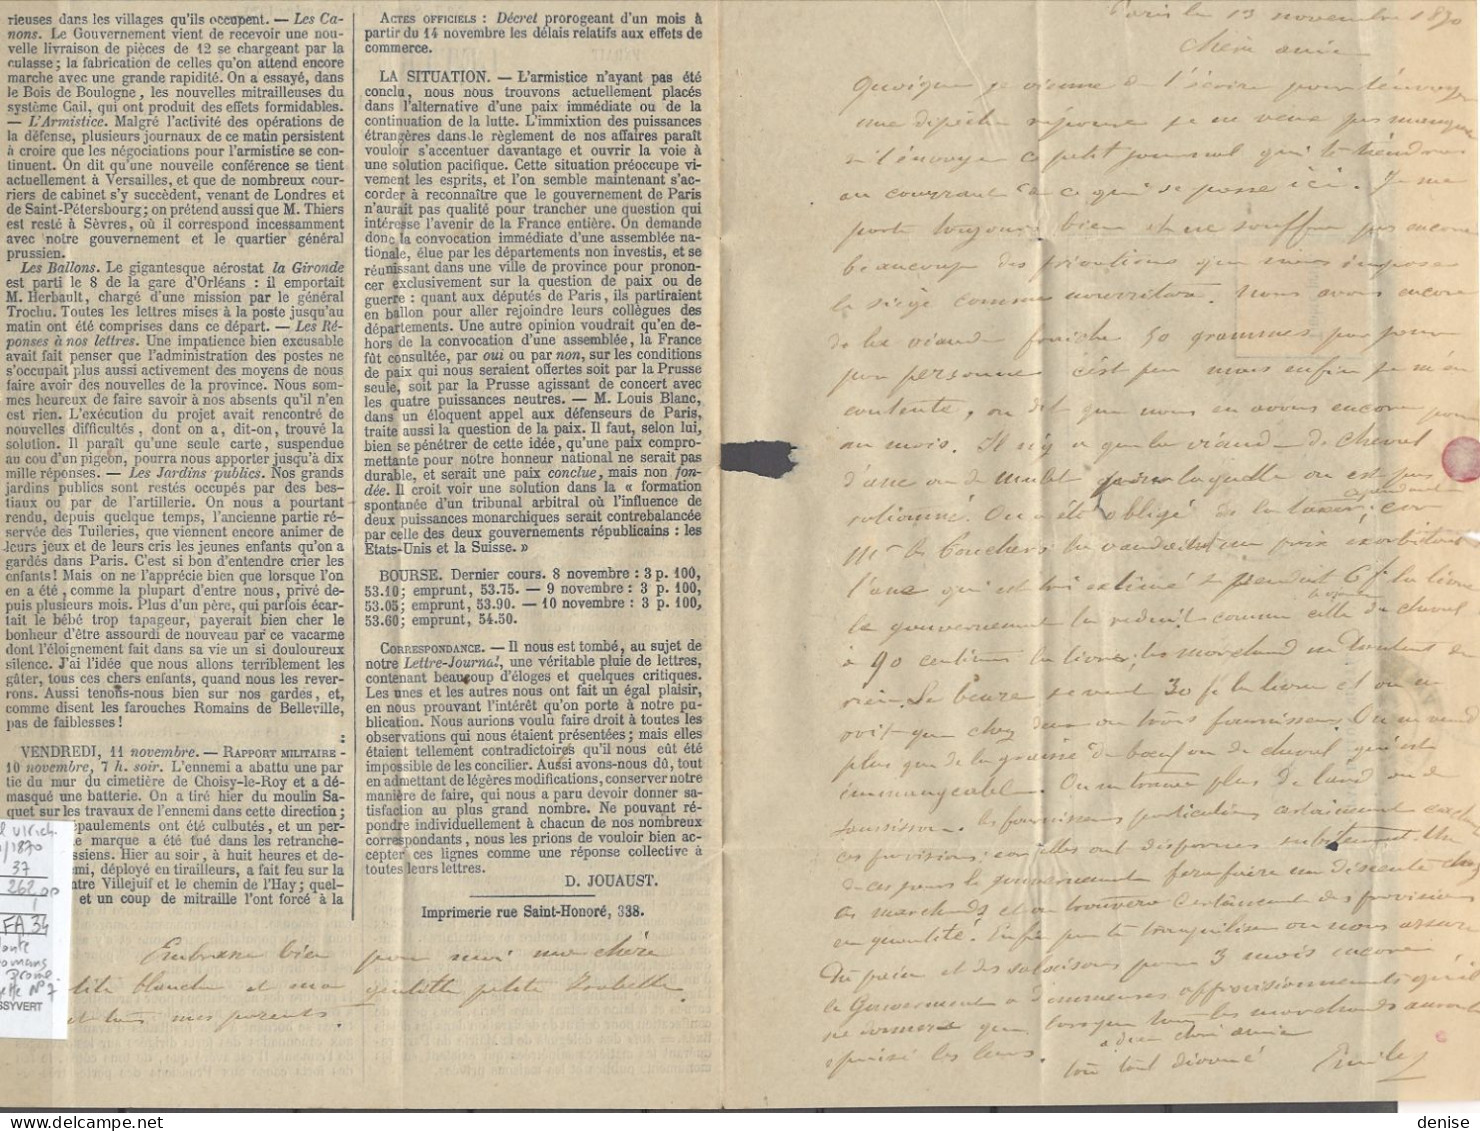 rieuses dans les villages qu'ils occupent. — Les Ca-
nons. Le Gouvernement vient de recevoir une nou-
velle livraison de pièces de 12 se chargeant par la
culasse ; la fabrication de celles qu'on attend encore
marche avec une grande rapidité. On a essayé, dans
le Bois de Boulogne, les nouvelles mitrailleuses du
système Gail, qui ont produit des effets formidables.
— L'Armistice. Malgré l'activité des opérations de
la défense, plusieurs journaux de ce matin persistent
à croire que les négociations pour l'armistice se con-
tinuent. On dit qu'une nouvelle conférence se tient
actuellement à Versailles, et que de nombreux cour-
riers de cabinet s'y succèdent, venant de Londres et
de Saint-Pétersbourg ; on prétend aussi que M. Thiers
est resté à Sèvres, où il correspond incessamment
avec notre gouvernement et le quartier général
prussien.
Les Ballons. Le gigantesque aérostat la Gironde
est parti le 8 de la gare d'Orléans : il emportait
M. Herbault, chargé d'une mission par le général
Trochu. Toutes les lettres mises à la poste jusqu'au
matin ont été comprises dans ce départ. — Les Ré-
ponses à nos lettres. Une impatience bien excusable
avait fait penser que l'administration des postes ne
s'occupait plus aussi activement des moyens de nous
faire avoir des nouvelles de la province. Nous som-
mes heureux de faire savoir à nos absents qu'il n'en
est rien. L'exécution du projet avait rencontré de
nouvelles difficultés, dont on a, dit-on, trouvé la
solution. Il paraît qu'une seule carte, suspendue
au cou d'un pigeon, pourra nous apporter jusqu'à dix
mille réponses. — Les Jardins publics. Nos grands
jardins publics sont restés occupés par des bes-
tiaux ou par de l'artillerie. On nous a pourtant
rendu, depuis quelque temps, l'ancienne partie ré-
servée des Tuileries, que viennent encore animer de
leurs jeux et de leurs cris les jeunes enfants qu'on a
gardés dans Paris. C'est si bon d'entendre crier les
enfants ! Mais on ne l'apprécie bien que lorsque l'on
en a été, comme la plupart d'entre nous, privé de-
puis plusieurs mois. Plus d'un père, qui parfois écar-
tait le bébé trop tapageur, payerait bien cher le
bonheur d'être assourdi de nouveau par ce vacarme
dont l'éloignement fait dans sa vie un si douloureux
silence. J'ai l'idée que nous allons terriblement les
gâter, tous ces chers enfants, quand nous les rever-
rons. Aussi tenons-nous bien sur nos gardes, et,
comme disent les farouches Romains de Belleville,
pas de faiblesses !
VENDREDI, 11 novembre. — RAPPORT MILITAIRE :
10 novembre, 7 h. soir. L'ennemi a abattu une par
tie du mur du cimetière de Choisy-le-Roy et a dé-
masqué une batterie. On a tiré hier du moulin Sa-
quet sur les travaux de l'ennemi dans cette direction ;
épaulements ont été culbutés, et un per-
marque a été tué dans les retranche-
ssiens. Hier au soir, à huit heures et de-
mi, déployé en tirailleurs, a fait feu sur la
ntre Villejuif et le chemin de l'Hay ; quel-
et un coup de mitraille l'ont forcé à la
ACTES OFFICIELS : Décret prorogeant d'un mois à
partir du 14 novembre les délais relatifs aux effets de
commerce.
LA SITUATION. — L'armistice n'ayant pas été
conclu, nous nous trouvons actuellement placés
dans l'alternative d'une paix immédiate ou de la
continuation de la lutte. L'immixtion des puissances
étrangères dans le règlement de nos affaires paraît
vouloir s'accentuer davantage et ouvrir la voie à
une solution pacifique. Cette situation préoccupe vi-
vement les esprits, et l'on semble maintenant s'ac-
corder à reconnaître que le gouvernement de Paris
n'aurait pas qualité pour trancher une question qui
intéresse l'avenir de la France entière. On demande
donc la convocation immédiate d'une assemblée na-
tionale, élue par les départements non investis, et se
réunissant dans une ville de province pour pronon-
cer exclusivement sur la question de paix ou de
guerre : quant aux députés de Paris, ils partiraient
en ballon pour aller rejoindre leurs collègues des
départements. Une autre opinion voudrait qu'en de-
hors de la convocation d'une assemblée, la France
fût consultée, par oui ou par non, sur les conditions
de paix qui nous seraient offertes soit par la Prusse
seule, soit par la Prusse agissant de concert avec
les quatre puissances neutres. — M. Louis Blanc,
dans un éloquent appel aux défenseurs de Paris,
traite aussi la question de la paix. Il faut, selon lui,
bien se pénétrer de cette idée, qu'une paix compro-
mettante pour notre honneur national ne serait pas
durable, et serait une paix conclue, mais non fon-
dée. Il croit voir une solution dans la « formation
spontanée d'un tribunal arbitral où l'influence de
deux puissances monarchiques serait contrebalancée
par celle des deux gouvernements républicains : les
Etats-Unis et la Suisse. »
BOURSE. Dernier cours. 8 novembre : 3 p. 100,
53.10 ; emprunt, 53.75. — 9 novembre : 3 p. 100,
53.05 ; emprunt, 53.90. — 10 novembre : 3 p. 100,
53.60 ; emprunt, 54.50.
CORRESPONDANCE. — Il nous est tombé, au sujet de
notre Lettre-Journal, une véritable pluie de lettres,
contenant beaucoup d'éloges et quelques critiques.
Les unes et les autres nous ont fait un égal plaisir,
en nous prouvant l'intérêt qu'on porte à notre pu-
blication. Nous aurions voulu faire droit à toutes les
observations qui nous étaient présentées ; mais elles
étaient tellement contradictoires qu'il nous eût été
impossible de les concilier. Aussi avons-nous dû, tout
en admettant de légères modifications, conserver notre
manière de faire, qui nous a paru devoir donner sa-
tisfaction au plus grand nombre. Ne pouvant ré-
pondre individuellement à chacun de nos nombreux
correspondants, nous les prions de vouloir bien ac-
cepter ces lignes comme une réponse collective à
toutes leurs lettres.
D. JOUAUST.
Imprimerie rue Saint-Honoré, 338.
Embrasse bien pour moi ma chère
tite blanche et ma petite Isabelle
et tous mes parents.
Ulrich
/1870
37
262
FA 34
SSYVERT
Paris le 13 novembre 1870
Chère amie
Quoique je vienne de t'écrire pour t'envoyer
une dépêche réponse je ne veux pas manquer
t'envoyer ce petit journal qui te tiendra
au courant de ce qui se passe ici. Je me
porte toujours bien et ne souffre pas encore
beaucoup des privations que nous impose
le siège comme nourriture. Nous avons encore
de la viande fraiche 50 grammes par jour
par personne c'est peu mais enfin je m'en
contente, on dit que nous en avons encore pour
un mois. Il n'y a que la viande de cheval
d'âne ou de mulet pour laquelle on est pas
rationné. On a été obligé de la taxer cependant car
MM les bouchers la vendaient un prix exorbitant
l'âne qui est très estimé se vendait 6 f. la livre
le gouvernement la réduit comme celle de cheval
à 90 centimes la livre, les marchands
rien. Le beurre se vend 30 f la livre et on n
voit que chez deux ou trois fournisseurs. On ne vend
plus que de la graisse de boeuf ou de cheval qui est
immangeable. On ne trouve plus de lard ou de
saucisson. les fournisseurs particuliers certainement cachent
ces provisions, car elles ont disparues subitement. Un
de ces jours le gouvernement fera faire une descente chez
les marchands et on trouvera certainement des provisions
en quantité. Enfin pour te tranquiliser on nous assure
du pain et des salaisons pour 3 mois encore
le Gouvernement a d'immenses approvisionnements qu'il
ne donnera que lorsque tous les marchands auront
épuisé les leurs.
adieu chère amie
ton tout dévoué Emile
denise